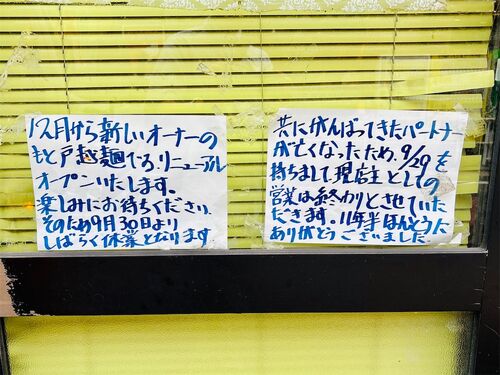 12月から新しいオーナーの
もと戸越麺でる、リニューアル
オープンいたします。
楽しみにお待ちください。
そのため9月30日より
しばらく休業となります
共にがんばってきたパートナー
が亡くなったため、9/29を
持ちまして現店主としての
営業は終わりとさせていた
だきます。11年半ほんとうに
ありがとうございました。